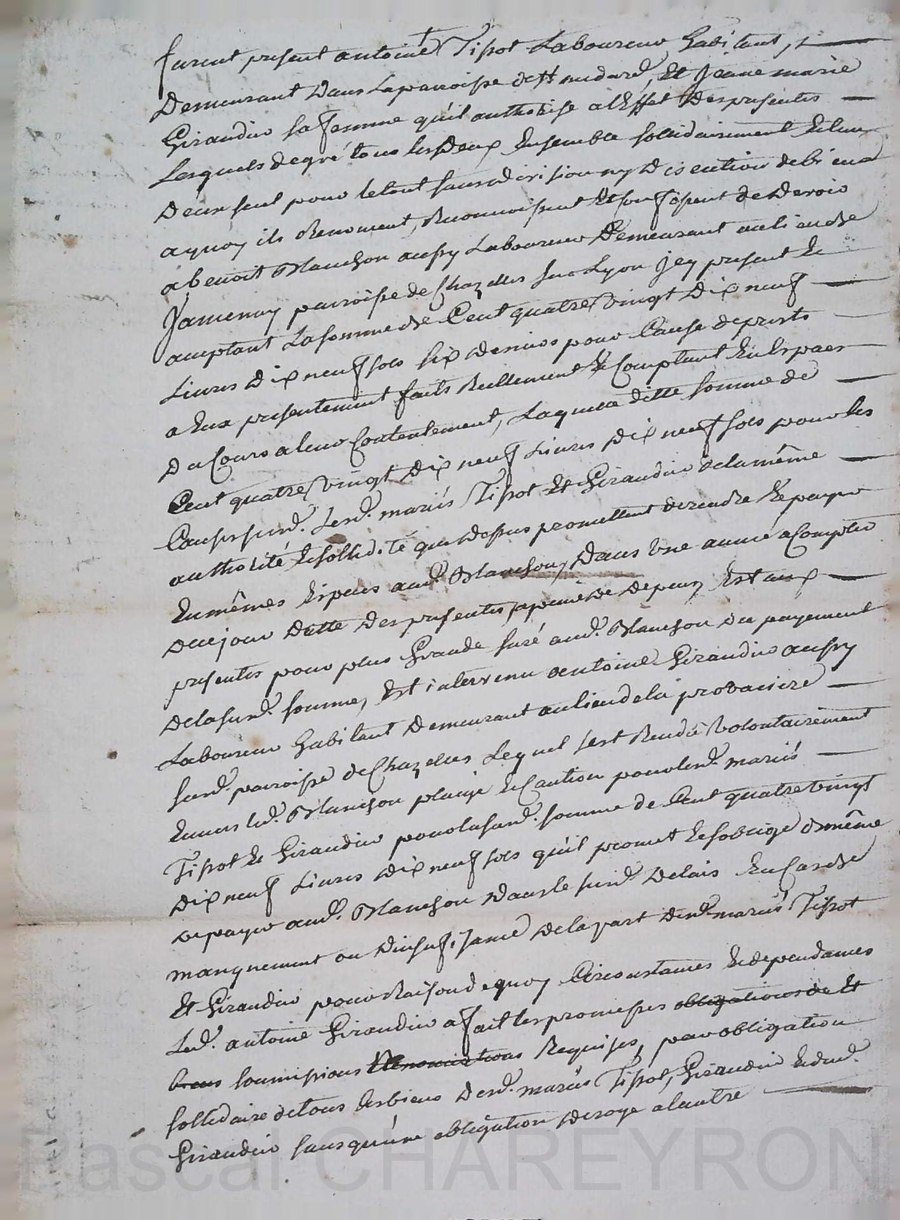 furent present antoine Tissot Laboureur habitant, et
Demeurant Dans La parroisse de St medard, Et Jeane marie
Giraudier sa femme qu'il authorise a l'Effet Des presentes
Lesquels de gré tous les deux Ensemble sollidairement Et l'un
D'eux seul pour le tout sans division ny Discution de biens
a quoy ils Renoncent, Reconnoissent Et Confessent de Devoir
a benoit Blanchon aussy Laboureur Demeurant au lieu de
Jamenoy parroisse de Chazelles sur Lyon Jcy present Et
acceptant La somme de Cent quatre vingt Dix neuf
Livres Dix neuf sols six Deniers pour Cause de prests
a Eux presentement faits Reellement Et Comptant En Espaes
Du Cours a leur Contentement, Laquelle ditte somme de
Cent quatre vingt Dix neuf Livres Dix neuf sols pour les
Causes susd. Lesd. mariés Tissot Et Giraudier de la même
authorité Et sollid.té que dessus promettent de rendre Et payer
En mêmes Espaes aud. Blanchon, Dans Une année a Compter
Du jour Datte Des presentes a peine de Depens Est aux
presentes pour plus Grande sureté aud. Blanchon du payement
De la susd. somme, Est intervenu antoine Giraudier aussy
Laboureur habitant Demeurant au lieu de la provanière
susd. parroisse de Chazelles Lequel s'est Rendu volontairement
Envers led. Blanchon pleige Et Caution pour lesd. mariés
Tissot Et Giraudier pour la susd. somme de Cent quatre vingt
Dix neuf Livres Dix neuf sols qu'il promet Et s'oblige de même
de payer aud. Blanchon Dans le susd. Delais En Cas de
manquement ou D'insuf.sance De la part Desd. mariés Tissot
Et Giraudier pour Raison de quoy Circonstances Et dependances
Led. antoine Giraudier a fait les promesses obligations de Et
soumissions Renonciations Requises, par obligation
sollidaire de tous les biens Desd. mariés Tissot, Giraudier Et dud.
Giraudier sans qu'une obligation Deroge a l'autre
Pascal CHAREYRON